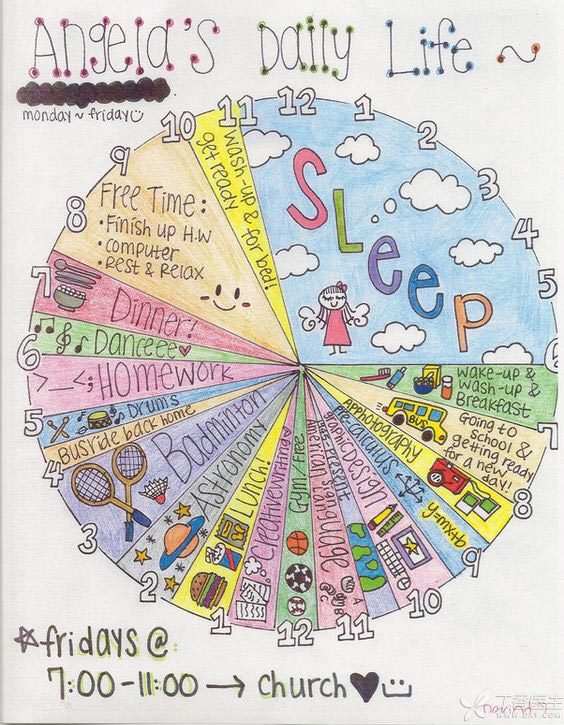 Angela's Daily Life ~
monday ~ friday
12
1
2
3
4
5
6
7
8
9
10
11
12
1
2
3
4
5
6
7
8
9
10
11
SLeep
wake-up &
wash-up &
Breakfast
Going to
school &
getting ready
for a new
day!
BUS
AP Photography
Pre-calculus
y=mx+b
graphic Design
American sign language
A
B
C
Gym / Free
Creative writing
Lunch!
Astronomy
Badminton
Bus ride back home
Drums
>__<; Homework
Danceee♥
Dinner!
Free Time:
• Finish up H.W
• computer
• Rest & Relax
wash-up &
get ready for bed!
☆fridays @
7:00-11:00 → church ♥